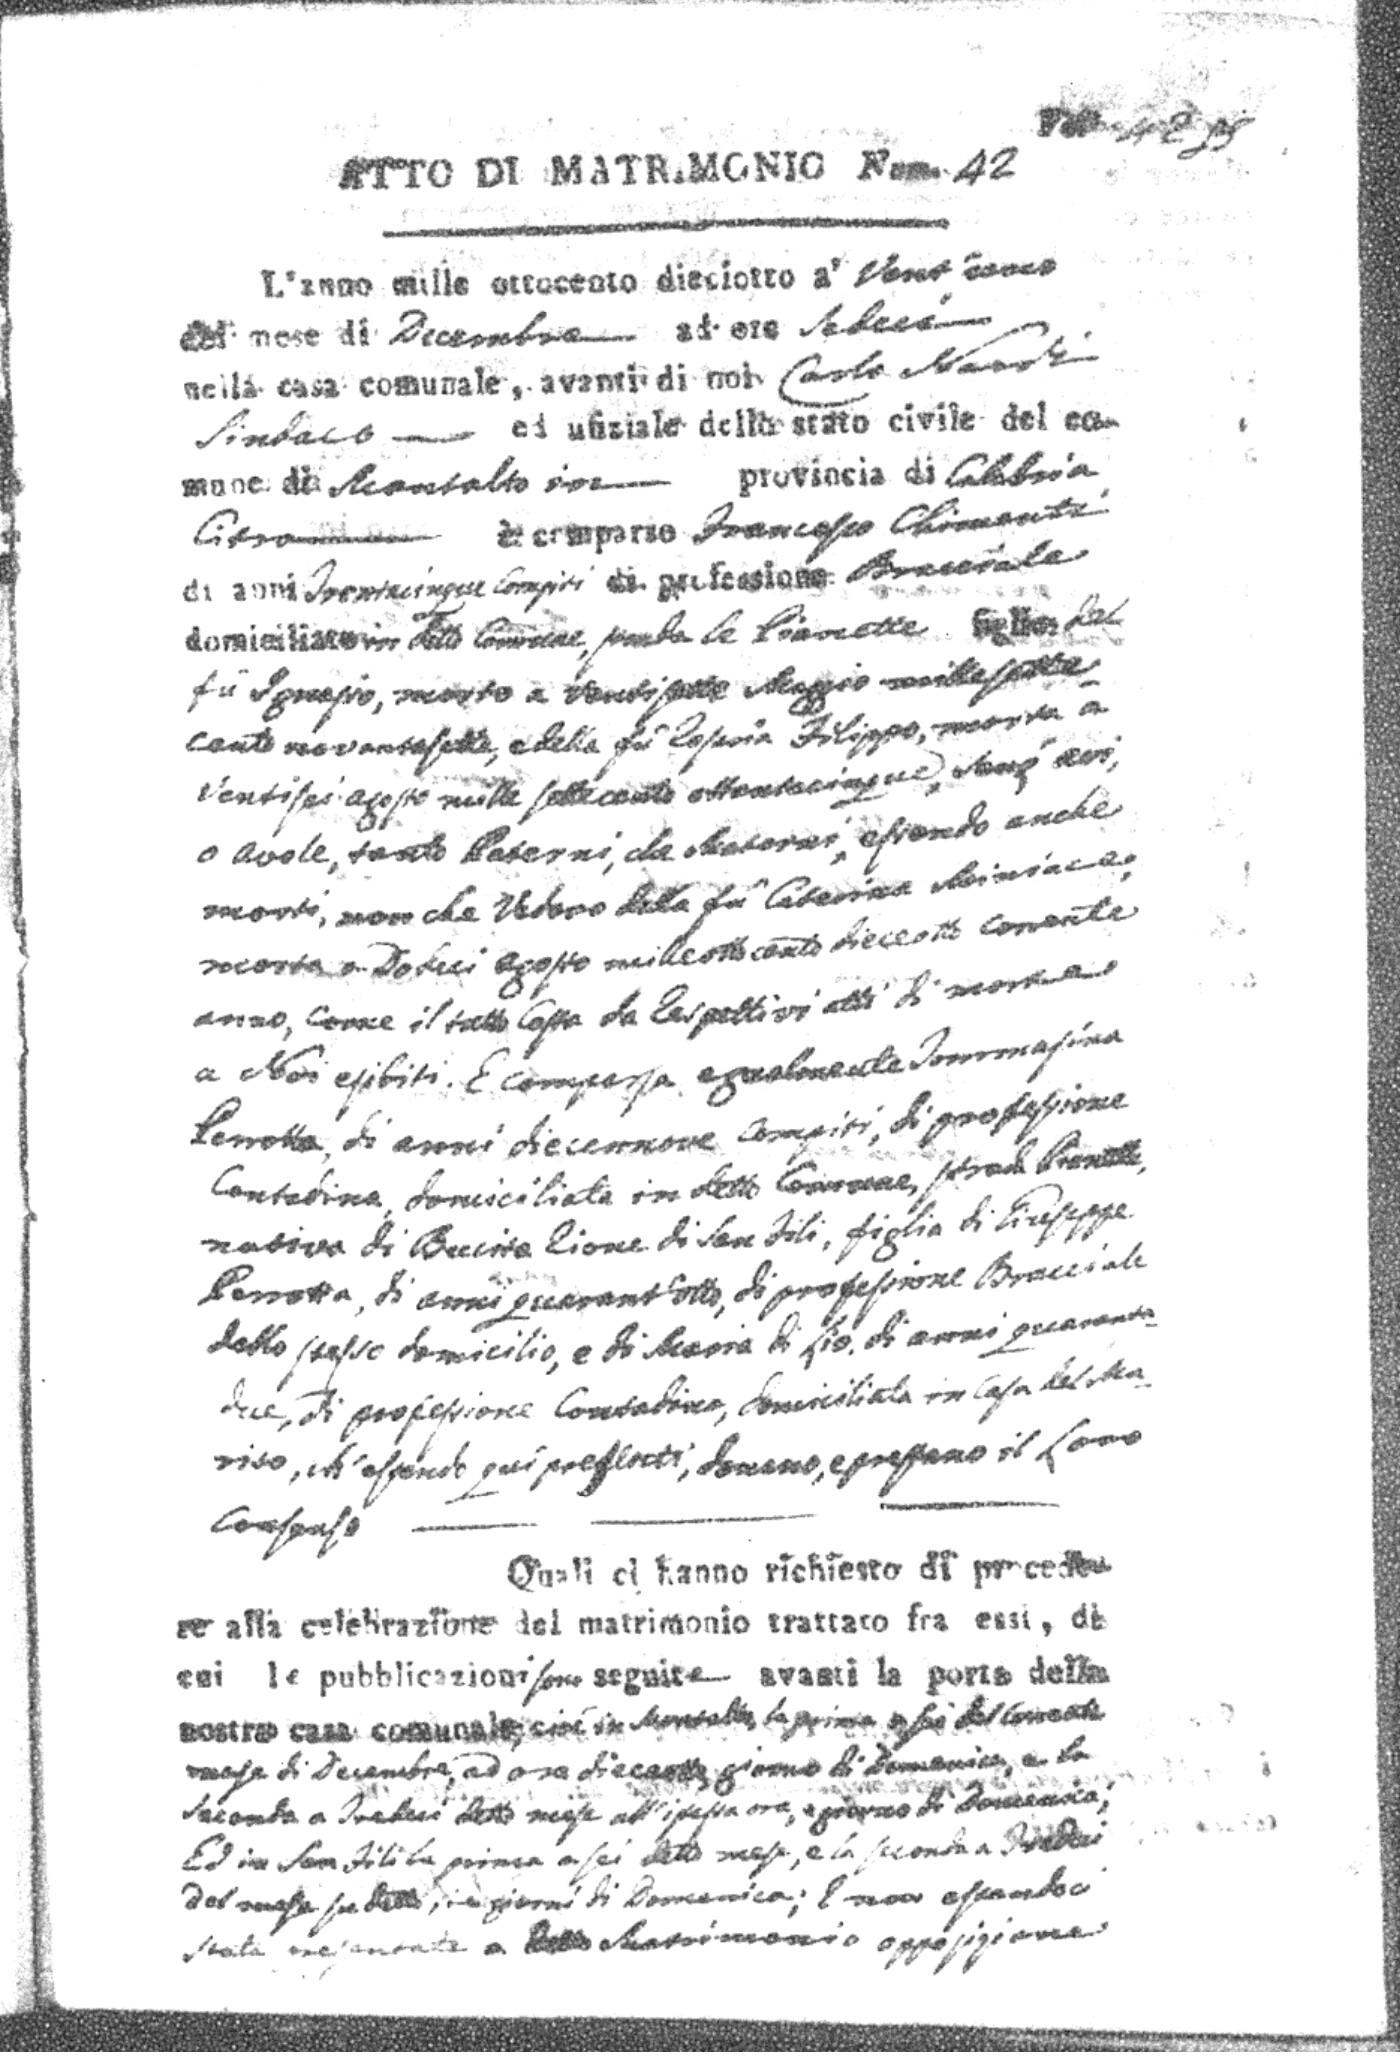 ATTO DI MATRIMONIO Num. 42
L'anno mille ottocento dieciotto a'
del mese di Decembre ad ore Sedeci
nella casa comunale, avanti di noi Carlo Nardi
Sindaco ed ufiziale dello stato civile del co-
mune di Montalto in provincia di Calabria
Citra è comparso Francesco Chimenti
di anni Trentacinque compiti di professione Bracciale
domiciliato in detto Comune, strada le Pianette figlio del
fù Ignazio, morto a Ventisette Maggio mille sette-
cento novantasette, e della fù Filippo, morta a
Ventisei agosto mille settecento ottantacinque, senz' avi,
o avole, tanto Paterni, che Materni, essendo anche
morti, non che Vedovo della fù Caterina Miniace,
morta a Dodeci agosto mille ottocento dieceotto corrente
anno, come il tutto Costa da respettivi atti di morte
a Noi esibiti. E comparsa egualmente Tommasina
Perrotta, di anni diecennove compiti, di professione
Contadina, domiciliata in detto Comune, strada Pianette,
nativa di Bucita Rione di San Fili, figlia di Giuseppe
Perrotta, di anni quarant'otto, di professione Bracciale
dello stesso domicilio, e di Maria di Lio, di anni quaranta-
due, di professione Contadina, domiciliata in Casa del Ma-
rito, ch' essendo quì presenti, danno, e prestano il loro
Consenso
Quali ci hanno richiesto di procede-
re alla celebrazione del matrimonio trattato fra essi, di
cui le pubblicazioni sono seguite avanti la porta della
nostra casa comunale, cioè in Montalto, la prima a sei del Corrente
mese di Decembre, ad ore dieceotto, giorno di Domenica, e la
seconda a Tredeci detto mese all' istessa ora, e giorno di Domenica;
Ed in San Fili la prima a sei detto mese, e la seconda a Tredeci
del mese sudetto, in giorni di Domenica; E non essendoci
stata presentata a detto Matrimonio opposizione